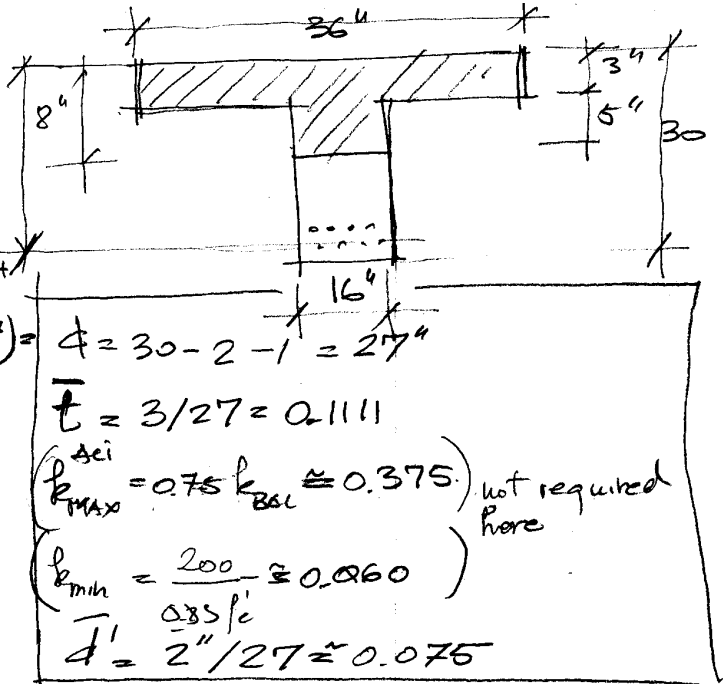 36"
3"
8"
5"
30
16"
d = 30 - 2 - 1 = 27"
t̄ = 3/27 = 0.1111
(k_MAX^ACI = 0.75 k_BAL ≅ 0.375) not required
here
(k_min = 200/0.85f'c ≅ 0.060)
d̄' = 2"/27 ≅ 0.075